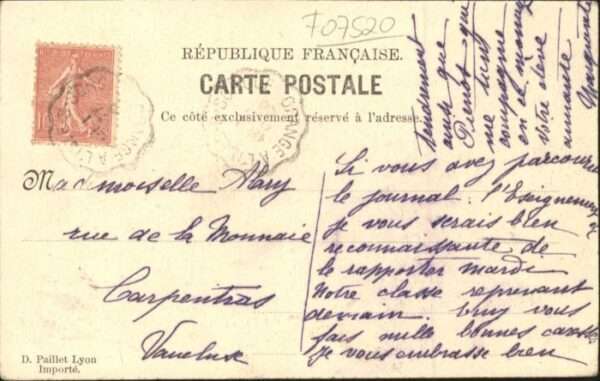 F07520
RÉPUBLIQUE FRANÇAISE.
CARTE POSTALE
Ce côté exclusivement réservé à l'adresse.
ORANGE A L'
Mademoiselle Mary
rue de la Monnaie
Carpentras
Vaucluse
D. Paillet Lyon
Importé.
Si vous avez parcouru
le journal. l'Enseignement
je vous serais bien
reconnaissante de
le rapporter mardi
Notre classe reprenant
demain. Puny vous
fais mille bonnes caresses
Je vous embrasse bien
tendrement
ainsi que
Pierrot qui
me tient
compagnie
en ce moment
votre élève
aimante
Marguerite